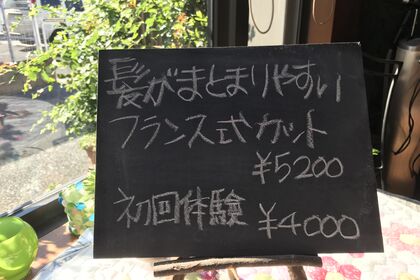 髪がまとまりやすい
フランス式カット
¥5200
初回体験 ¥4000